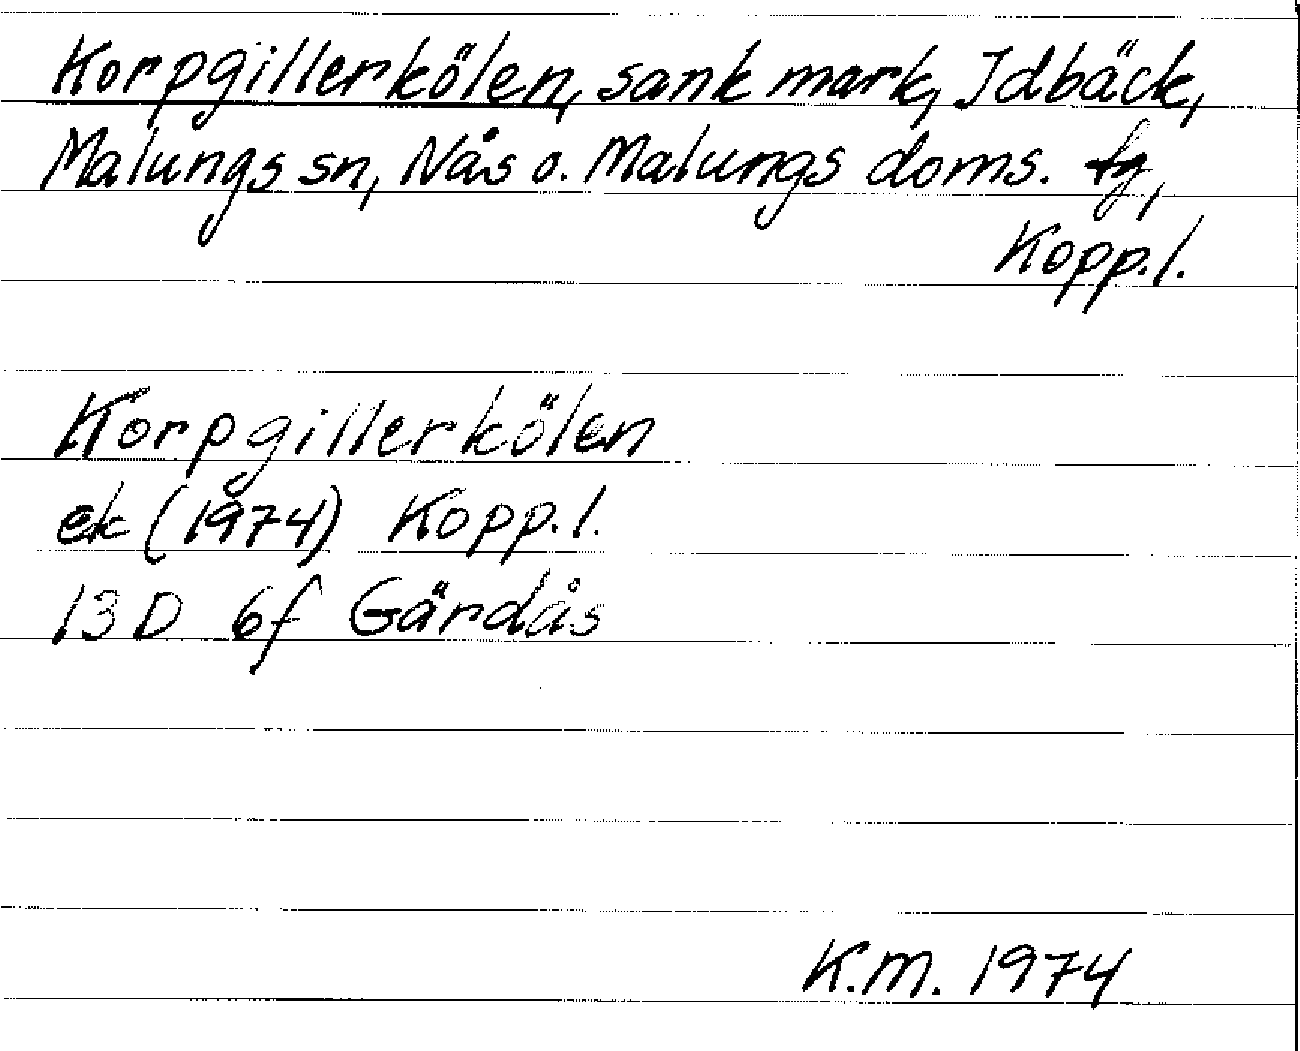 Korpgillerkölen, sank mark, Idbäck,
Malungs sn, Nås o. Malungs doms. fg,
Kopp.l.
Korpgillerkölen
ek (1974) Kopp.l.
13 D 6f Gärdås
K.M. 1974